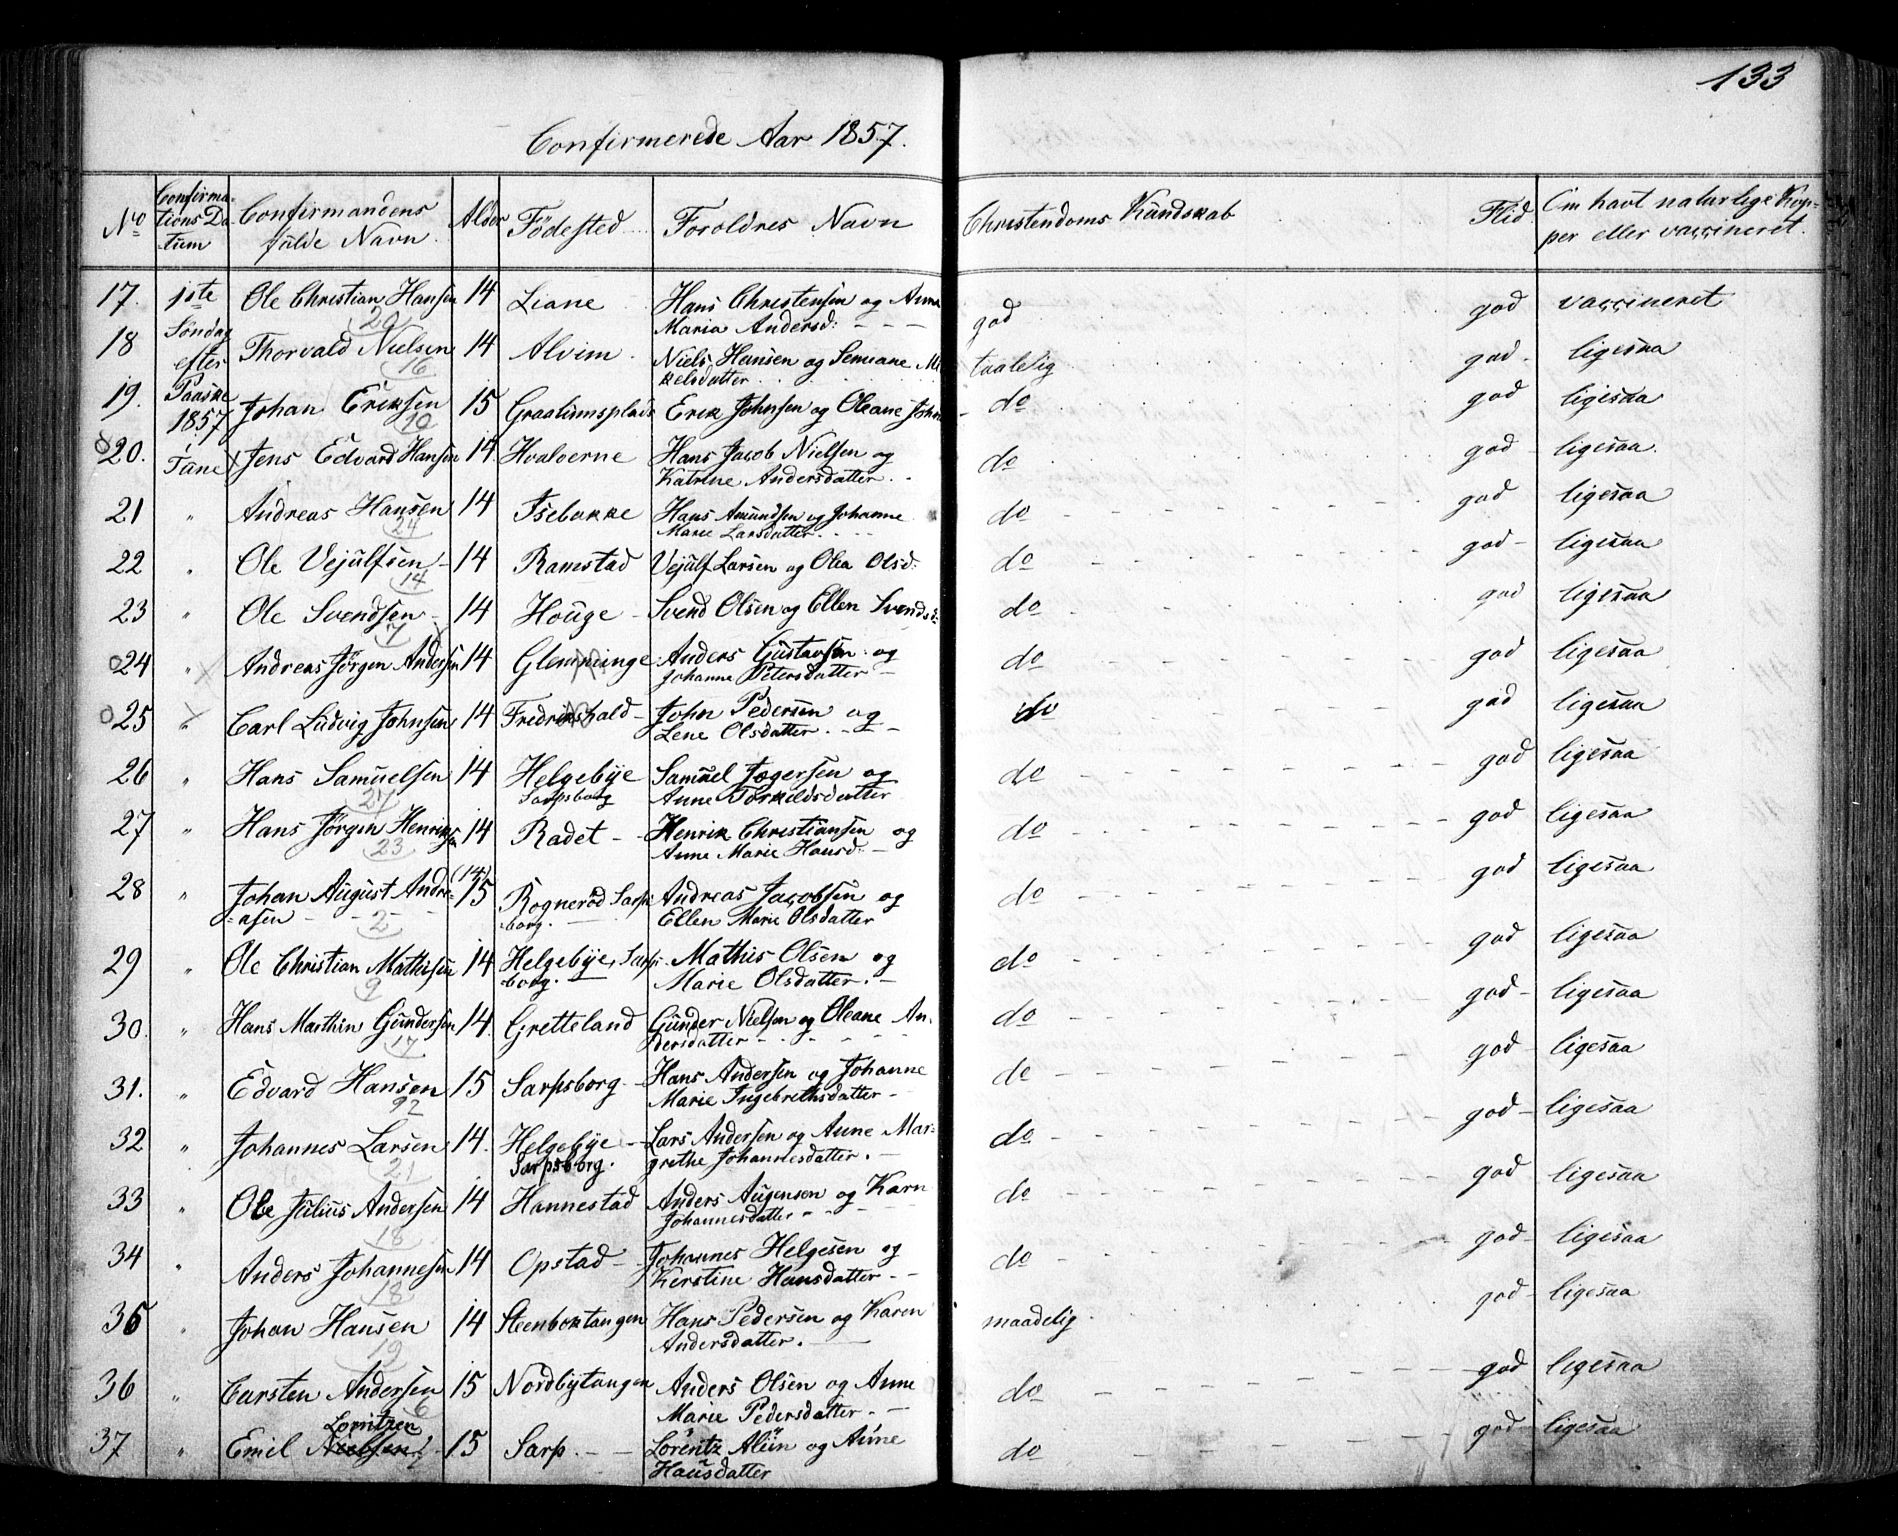 133
Confirmerede Aar 1857.
No Confirma- tions Da- tum Confirmandens fulde Navn Alder Fødested Foroldres Navn Christendoms Kundskab Flid Om havt naturlige Kop- per eller vaccineret.
17. 1ste Ole Christian Hansen 14 Liane Hans Christensen og Anna god god vaccineret
20 Maria Andersd:
18 Søndag efter Thorvald Nielsen 14 Alvim Niels Hansen og Semiane Mi- taalelig god ligesaa
16 kelsdatter
19. Paaske 1857 Johan Eriksen 15 Erik Johnsen og Oleane John do god ligesaa
10
20. i Tune Jens Edvard Hansen 14 Hvalverne Hans Jacob Nielsen og do god ligesaa.
Katrine Andersdatter
21 " Andreas Hansen 14 Isebakke Hans Amundsen og Johanne do god ligesaa
24 Marie Larsdatter
22 " Ole Vejulfsen 14 Ramstad Vejulf Larsen og Olea Olsd: do god ligesaa
14
23 " Ole Svendsen 14 Houge Svend Olsen og Ellen Svendsd: do god ligesaa
7
24 " Andreas Jørgen Andersen 14 Glemminge Anders Gustavsen og do god ligesaa
Johanne Petersdatter
25 " Carl Ludvig Johnsen 14 Fredrikshald John Pedersen og do god ligesaa
Lene Olsdatter
26 " Hans Samuelsen 14 Helgebye Samuel Jogersen og do god ligesaa
27 Sarpsborg Anne Torkildsdatter
27 " Hans Jørgen Henriksen 14 Radet Henrik Christiansen og do god ligesaa
23 Anne Marie Hansd:
28 " Johan August Andre- (14) 15 Rognerød Sarps Andreas Jacobsen og do god ligesaa
asen 2 borg. Ellen Marie Olsdatter
29 " Ole Christian Mathisen 14 Helgebye, Sarps Mathis Olsen og do god ligesaa
9 borg. Marie Olsdatter
30. " Hans Marthin Gundersen 14. Gretteland Gunder Nielsen og Oleane An- do god ligesaa
17 dersdatter
31. " Edvard Hansen 15 Sarpsborg Hans Andersen og Johanne do god ligesaa
92 Marie Ingebrethsdatter
32 " Johannes Larsen 14. Helgebye Lars Andersen og Anne Mar- do god ligesaa
21 Sarpsborg. grethe Johannesdatter.
33 " Ole Julius Andersen 14 Hannestad Anders Augensen og Karn do god ligesaa
18 Johannesdatter
34 " Anders Johannesen 14 Opstad Johannes Helgesen og do god ligesaa
18 Kerstine Hansdatter
35 " Johan Hansen 14 Steenboktangen Hans Pedersen og Karen maadelig god ligesaa
19 Andersdatter.
36 " Carsten Andersen 15 Nordbytangen Anders Olsen og Anne do god ligesaa
6 Marie Pedersdatter
37 " Emil Nielsen Lorntzen 15 Sarp. Lorentz Aliin og Anne do god ligesaa
2 Hansdatter